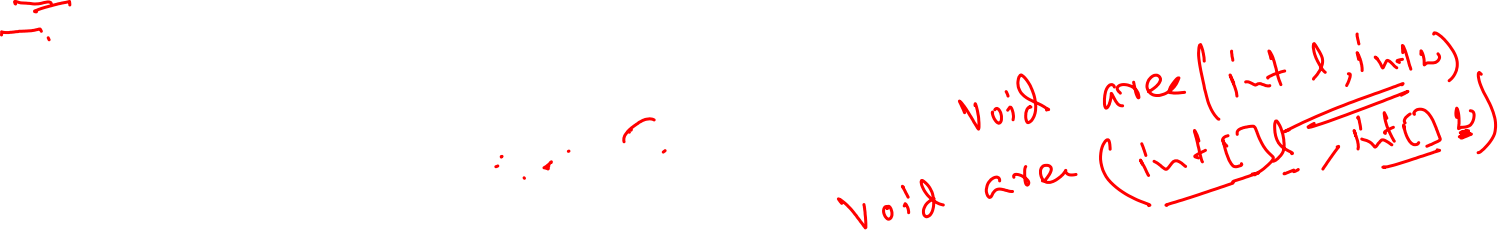 void area(int l, int w)
void area(int[] l, int[] w)